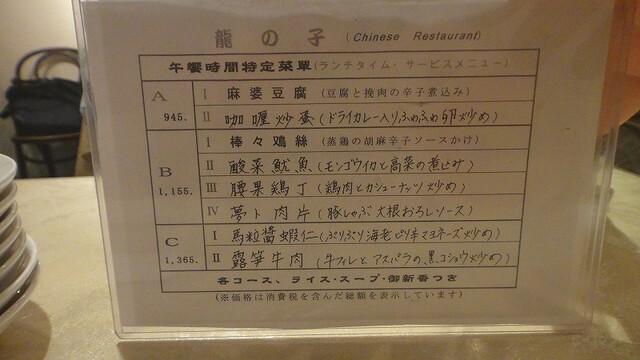 龍の子 (Chinese Restaurant)
午饗時間特定菜單(ランチタイム・サービスメニュー)
A 945. I 麻婆豆腐 (豆腐と挽肉の辛子煮込み)
II 咖喱炒蛋 (ドライカレー入りふわふわ卵炒め)
B 1,155. I 棒々鶏絲 (蒸鶏の胡麻辛子ソースかけ)
II 酸菜魷魚 (モンゴウイカと高菜の煮込み)
III 腰果鶏丁 (鶏肉とカシューナッツ炒め)
IV 夢卜肉片 (豚しゃぶ大根おろしソース)
C 1,365. I 馬粒醬蝦仁 (ぷりぷり海老ピリ辛マヨネーズ炒め)
II 露笋牛肉 (牛フィレとアスパラの黒コショウ炒め)
各コース、ライス・スープ・御新香つき
(※価格は消費税を含んだ総額を表示しています)